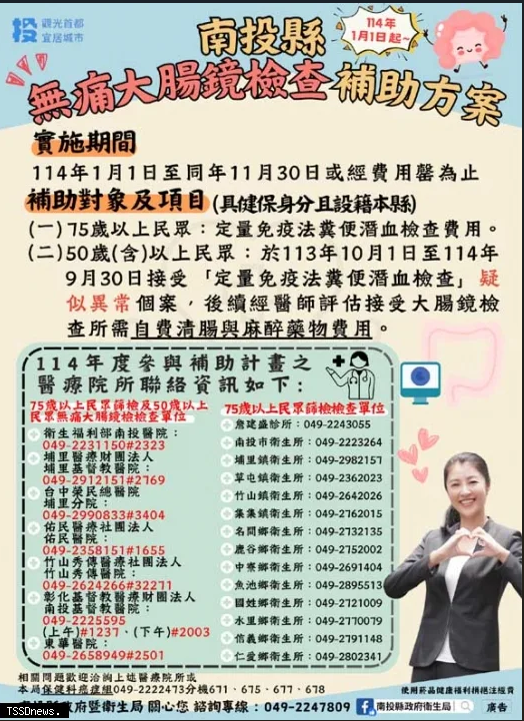 觀光首都
宜居城市
114年
1月1日起~
南投縣
無痛大腸鏡檢查補助方案
實施期間
114年1月1日至同年11月30日或經費用罄為止
補助對象及項目(具健保身分且設籍本縣)
(一)75歲以上民眾：定量免疫法糞便潛血檢查費用。
(二)50歲(含)以上民眾：於113年10月1日至114年
9月30日接受「定量免疫法糞便潛血檢查」疑
似異常個案，後續經醫師評估接受大腸鏡檢
查所需自費清腸與麻醉藥物費用。
114年度參與補助計畫之
醫療院所聯絡資訊如下：
75歲以上民眾篩檢及50歲以上
民眾無痛大腸鏡檢檢查單位
衛生福利部南投醫院：
049-2231150#2323
埔里醫療財團法人
埔里基督教醫院：
049-2912151#2769
台中榮民總醫院
埔里分院：
049-2990833#3404
佑民醫療社團法人
佑民醫院：
049-2358151#1655
竹山秀傳醫療社團法人
竹山秀傳醫院：
049-2624266#32271
彰化基督教醫療財團法人
南投基督教醫院：
049-2225595
(上午)#1237、(下午)#2003
東華醫院：
049-2658949#2501
75歲以上民眾篩檢檢查單位
詹建盛診所：049-2243055
南投市衛生所：049-2223264
埔里鎮衛生所：049-2982157
草屯鎮衛生所：049-2362023
竹山鎮衛生所：049-2642026
集集鎮衛生所：049-2762015
名間鄉衛生所：049-2732135
鹿谷鄉衛生所：049-2752002
中寮鄉衛生所：049-2691404
魚池鄉衛生所：049-2895513
國姓鄉衛生所：049-2721009
水里鄉衛生所：049-2770079
信義鄉衛生所：049-2791148
仁愛鄉衛生所：049-2802341
相關問題歡迎洽詢上述醫療院所或
本局保健科癌症組049-2222473分機671、675、677、678
使用菸品健康福利捐挹注經費
縣政府暨衛生局 關心您 諮詢專線：049-2247809
南投縣政府衛生局
廣告
TSSDnews.